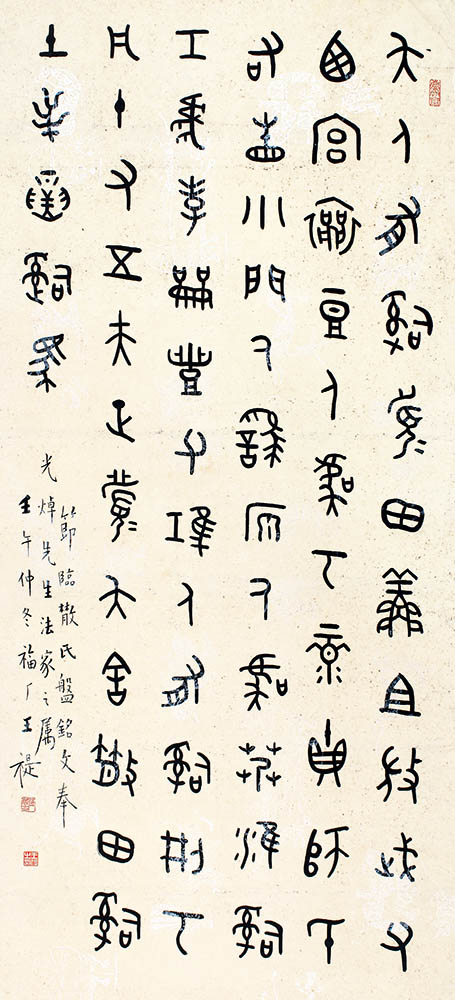 矢人有司眉田鮮且微武父
西宮襄豆人虞丂彔貞師氏
右眚小門人繇原人虞艿淮司
工虎孝龠豐父唯人有司刑丂
凡十又五夫正眉矢舍散田司
土屰寅司馬
節臨散氏盤銘文奉
光焯先生法家之屬
壬午仲冬福厂王禔